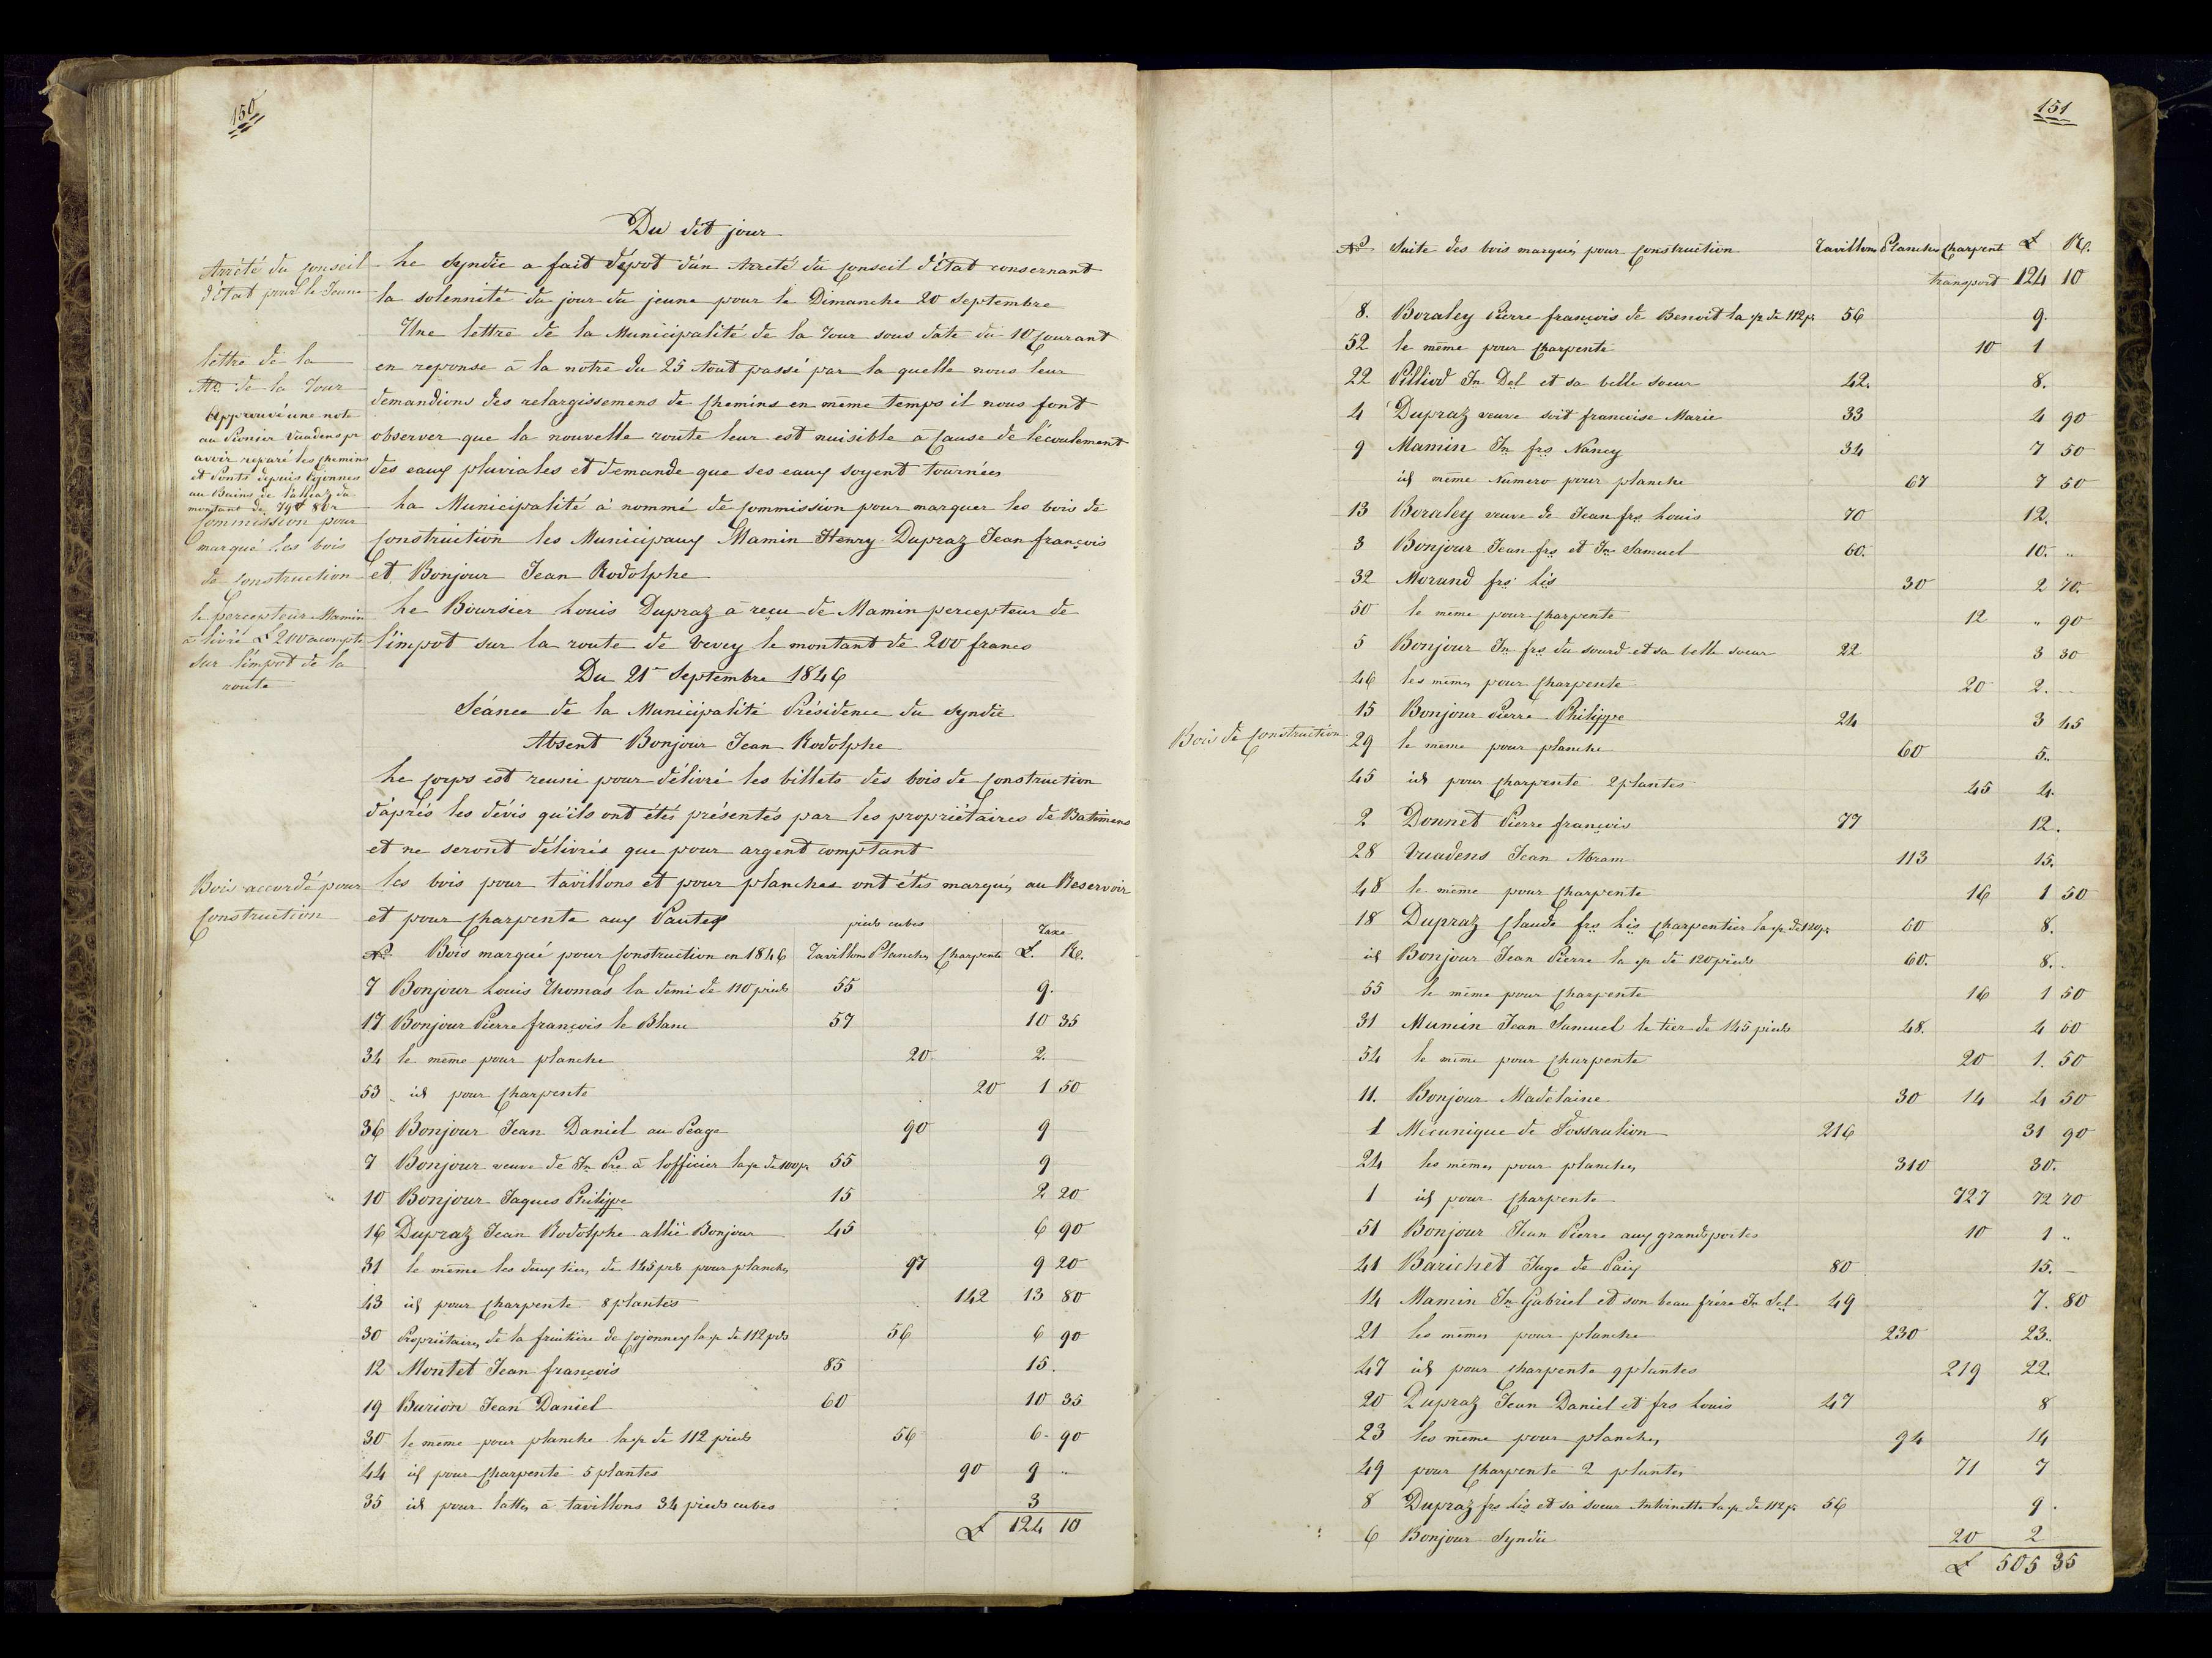 150
Du dit jour
Arrêté du Conseil
d'Etat pour le Jeune
Le Syndic a fait dépot d'un Arreté du Conseil d'état consernant
la solennité du jour du jeune pour le Dimanche 20 Septembre
Une lettre de la Municipalité de la Tour sous date du 10 Courant
lettre de la
Mté de la Tour
en reponse à la notre du 25 Aout passé par la quelle nous leur
demandions des relargissemens de Chemins en même temps il nous font
Approuvé une note
au Pionier Vuadens pr
avoir reparé les Chemins
et Ponts depuis Cojonnex
au Bains de l'alliaz du
montant de 79 £ 80 r
observer que la nouvelle route leur est nuisible à Cause de l'écoulement
des eaux pluviales et demande que ses eaux soyent tournées
Commission pour
marqué les bois
de Construction
La Municipalité à nommé de Commission pour marquer les bois de
Construction les Municipaux Mamin Henry Dupraz Jean françois
et Bonjour Jean Rodolphe
le percepteur Mamin
a livré £ 200 acompte
sur l'impot de la
route
Le Boursier Louis Dupraz à reçu de Mamin percepteur de
l'impot sur la route de Vevey le montant de 200 francs
Du 21 Septembre 1846
Séance de la Municipalité Présidence du Syndic
Absent Bonjour Jean Rodolphe
Le Corps est reuni pour délivré les billets des bois de Construction
d'après les dévis qu'ils ont étés présentés par les propriétaires de Batimens
et ne seront délivrés que pour argent comptant
Bois accordé pour
Construction
les bois pour tavillons et pour planches ont étés marqués au Reservoir
et pour Charpente aux Pautex
pieds cubes Taxe
No Bois marqué pour Construction en 1846 Tavillons Planches Charpente £. Rp.
7 Bonjour Louis Thomas la demi de 110 pieds 55 9.
17 Bonjour Pierre françois le Blanc 57 10 35
34 le même pour planche 20 2.
53 id pour Charpente 20 1 50
36 Bonjour Jean Daniel au Péage 90 9
7 Bonjour veuve de Jn Pre à l'officier la ½ de 100 ps 55 9
10 Bonjour Jaques Philippe 15 2 20
16 Dupraz Jean Rodolphe allié Bonjour 45 6 90
31 le même les deux tiers de 145 pds pour planches 97 9 20
43 id pour Charpente 8 plantes 142 13 80
30 Propriétaires de la fruitière de Cojonnex la ½ de 112 pds 56 6 90
12 Montet Jean françois 85 15.
19 Burion Jean Daniel 60 10 35
30 le même pour planche la ½ de 112 pieds 56 6 90
44 id pour Charpente 5 plantes 90 9 "
35 id pour lattes à tavillons 34 pieds cubes 3
£ 124 10
151
No Suite des bois marqués pour Construction Tavillons Planches Charpent £ Rp.
transport 124 10
8. Boraley Pierre françois de Benoit la ½ de 112 ps 56 9.
52 le même pour Charpente 10 1
22 Pilliod Jn Del et sa belle soeur 42. 8.
4 Dupraz veuve soit francoise Marie 33 4 90
9 Mamin Jn frs Nancy 34 7 50
id même Numero pour planche 67 7 50
13 Boraley veuve de Jean frs Louis 70 12.
3 Bonjour Jean frs et Jn Samuel 60. 10. "
32 Morand frs Ls 30 2 70.
50 le même pour Charpente 12 " 90
5 Bonjour Jn frs du sourd et sa belle soeur 22 3 30
46 les mêmes pour Charpente 20 2.
15 Bonjour Pierre Philippe 24 3 45
Bois de Construction
29 le même pour planche 60 5.
45 id pour Charpente 2 plantes 45 4.
2 Donnet Pierre françois 77 12.
28 Vuadens Jean Abram 113 15.
48 le même pour Charpente 16 1 50
18 Dupraz Claude frs Ls Charpentier la ½ de 120 ps 60 8.
id Bonjour Jean Pierre la ½ de 120 pieds 60. 8.
55 le même pour Charpente 16 1 50
31 Mamin Jean Samuel le tier de 145 pieds 48. 4 60
54 le même pour Charpente 20 1. 50
11. Bonjour Madelaine 30 14 4 50
1 Mécanique de Fossaulion 216 31 90
24 les mêmes pour planches 310 30.
1 id pour Charpente 727 72 70
51 Bonjour Jean Pierre aux grands portes 10 1 "
41 Barichet Juge de Paix 80 15.
14 Mamin Jn Gabriel et son beau frère Jn Sel 49 7. 80
21 les mêmes pour planche 230 23.
47 id pour Charpente 9 plantes 219 22.
20 Dupraz Jean Daniel et frs Louis 47 8
23 les même pour planches 94 14
49 pour Charpente 2 plantes 71 7
8 Dupraz frs Ls et sa soeur Antoinette la ½ de 112 ps 56 9.
6 Bonjour Syndic 20 2
£ 505 35